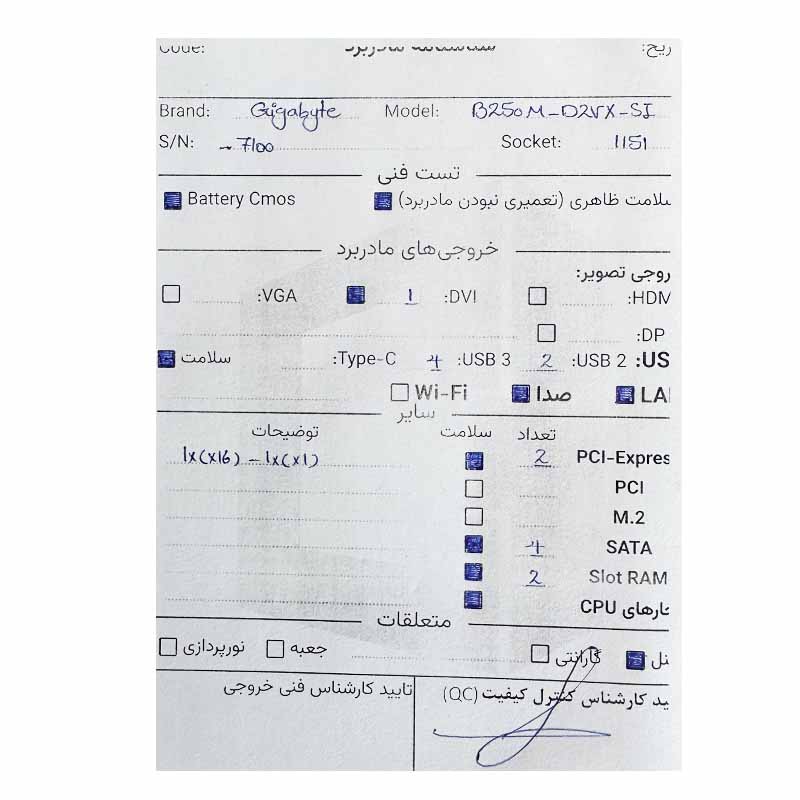 شناسنامه مادربرد Code:
Brand: Gigabyte Model: B250M-D2VX-SI
S/N: ~ 7100 Socket: 1151
تست فنی
سلامت ظاهری (تعمیری نبودن مادربرد) Battery Cmos
خروجی‌های مادربرد
روجی تصویر:
HDM: DVI: 1 VGA:
DP:
US: USB 2: 2 USB 3: 4 Type-C: سلامت
LA صدا Wi-Fi
سایر
تعداد سلامت توضیحات
PCI-Expres 2 1x(x16) - 1x(x1)
PCI
M.2
SATA 4
Slot RAM 2
خارهای CPU
متعلقات
نل گارانتی جعبه نورپردازی
ید کارشناس کنترل کیفیت (QC) تایید کارشناس فنی خروجی